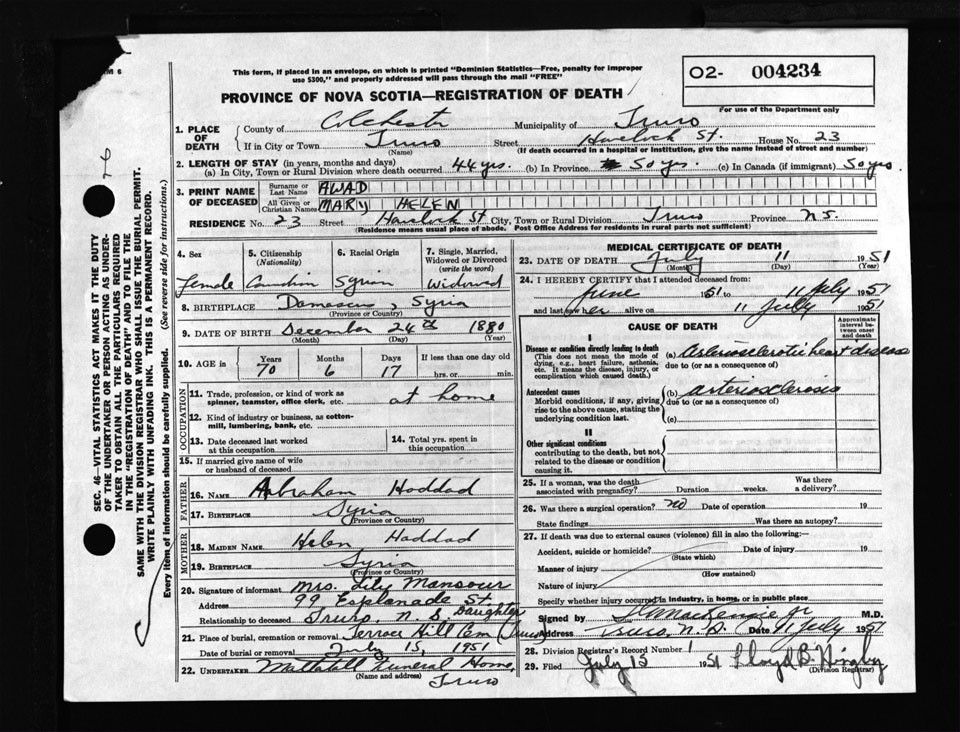 This form, if placed in an envelope, on which is printed "Dominion Statistics—Free, penalty for improper
use $300," and properly addressed will pass through the mail "FREE"
PROVINCE OF NOVA SCOTIA—REGISTRATION OF DEATH
O2- 004234
For use of the Department only
1. PLACE OF DEATH
County of Colchester Municipality of Truro
If in City or Town Truro Street Havelock St. House No. 23
(Name) (If death occurred in a hospital or institution, give the name instead of street and number)
2. LENGTH OF STAY (in years, months and days)
(a) In City, Town or Rural Division where death occurred 44 yrs. (b) In Province 50 yrs. (c) In Canada (if immigrant) 50 yrs
3. PRINT NAME OF DECEASED
Surname or Last Name AWAD
All Given or Christian Names MARY HELEN
RESIDENCE No. 23 Street Havelock St City, Town or Rural Division Truro Province N.S.
(Residence means usual place of abode. Post Office Address for residents in rural parts not sufficient)
4. Sex
female
5. Citizenship (Nationality)
Canadian
6. Racial Origin
Syrian
7. Single, Married, Widowed or Divorced (write the word)
Widowed
8. BIRTHPLACE Damascus, Syria
(Province or Country)
9. DATE OF BIRTH December 24th 1880
(Month) (Day) (Year)
10. AGE in
Years Months Days If less than one day old
70 6 17 hrs. or min.
OCCUPATION
11. Trade, profession, or kind of work as
spinner, teamster, office clerk, etc. at home
12. Kind of industry or business, as cotton-
mill, lumbering, bank, etc.
13. Date deceased last worked
at this occupation
14. Total yrs. spent in
this occupation
15. If married give name of wife
or husband of deceased
FATHER
16. NAME Abraham Haddad
17. BIRTHPLACE Syria
(Province or Country)
MOTHER
18. MAIDEN NAME Helen Haddad
19. BIRTHPLACE Syria
(Province or Country)
20. Signature of informant Mrs. Lily Mansour
Address 99 Esplanade St.
Relationship to deceased Truro, N.S. Daughter
21. Place of burial, cremation or removal Terrace Hill Cem Truro
Date of burial or removal July 15, 1951
22. UNDERTAKER Mattatall Funeral Home,
(Name and address) Truro
MEDICAL CERTIFICATE OF DEATH
23. DATE OF DEATH July 11 1951
(Month) (Day) (Year)
24. I HEREBY CERTIFY that I attended deceased from:
June 1951 to 11 July 1951
and last saw her alive on 11 July 1951
CAUSE OF DEATH
Approximate interval between onset and death
I
Disease or condition directly leading to death
(This does not mean the mode of
dying, e.g., heart failure, asthenia,
etc. It means the disease, injury, or
complication which caused death.)
(a) arteriosclerotic heart disease
due to (or as a consequence of)
Antecedent causes
Morbid conditions, if any, giving
rise to the above cause, stating the
underlying condition last.
(b) arteriosclerosis
due to (or as a consequence of)
(c)
II
Other significant conditions
contributing to the death, but not
related to the disease or condition
causing it.
25. If a woman, was the death
associated with pregnancy? Duration weeks. Was there a delivery?
26. Was there a surgical operation? no Date of operation 19
State findings Was there an autopsy?
27. If death was due to external causes (violence) fill in also the following:—
Accident, suicide or homicide? Date of injury 19
(State which)
Manner of injury
(How sustained)
Nature of injury
Specify whether injury occurred in industry, in home, or in public place
Signed by MacKenzie Jr M.D.
Address Truro, N.S. Date 11 July 1951
28. Division Registrar's Record Number 1
29. Filed July 15 1951 Lloyd B.
(Division Registrar)
SEC. 46—VITAL STATISTICS ACT MAKES IT THE DUTY
OF THE UNDERTAKER OR PERSON ACTING AS UNDER-
TAKER TO OBTAIN ALL THE PARTICULARS REQUIRED
IN THE "REGISTRATION OF DEATH" AND TO FILE THE
SAME WITH THE DIVISION REGISTRAR WHO SHALL ISSUE THE BURIAL PERMIT.
WRITE PLAINLY WITH UNFADING INK. THIS IS A PERMANENT RECORD.
Every item of information should be carefully supplied. (See reverse side for instructions.)